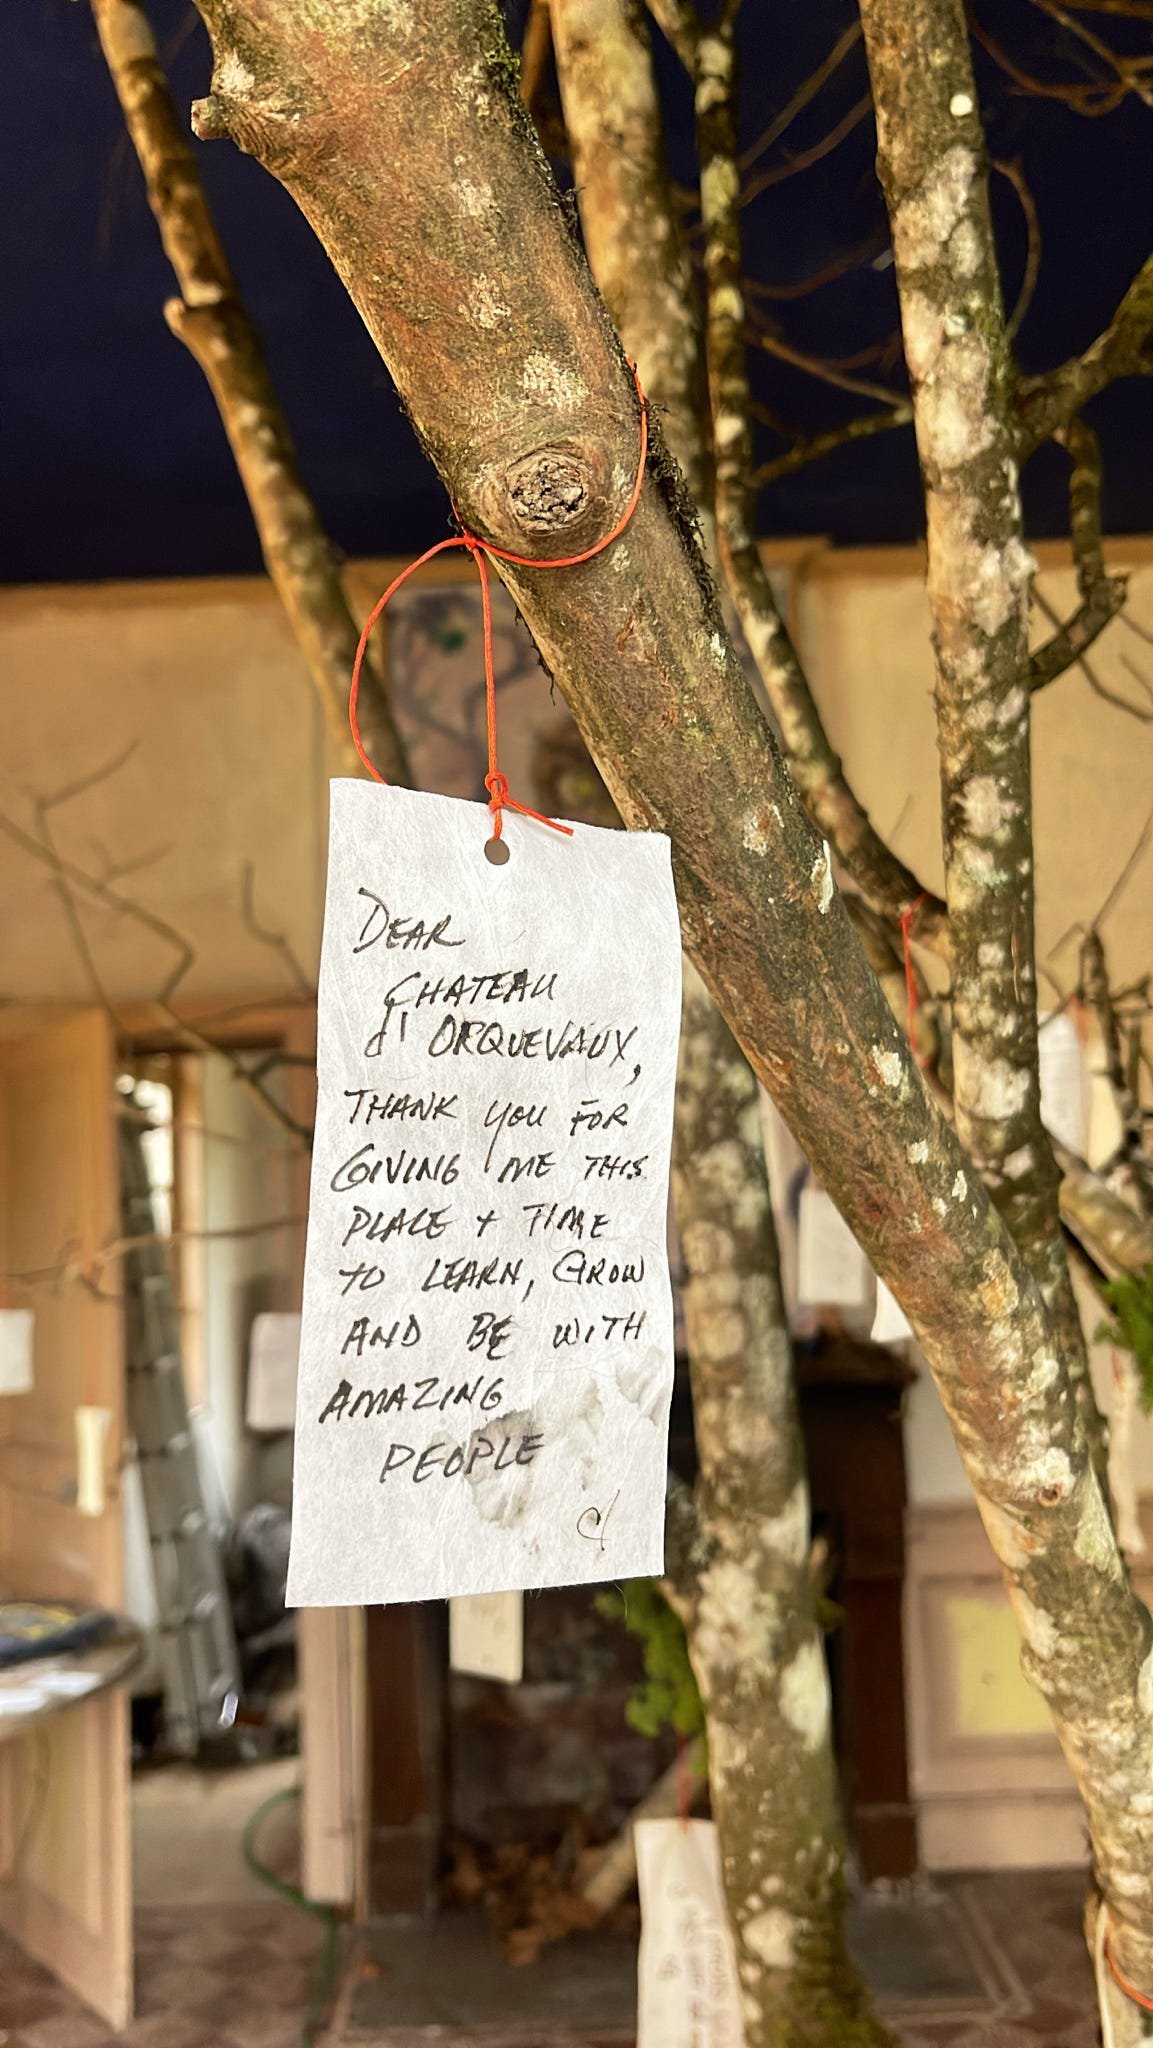 DEAR
CHATEAU
d' ORQUEVAUX,
THANK YOU FOR
GIVING ME THIS
PLACE + TIME
TO LEARN, GROW
AND BE WITH
AMAZING
PEOPLE